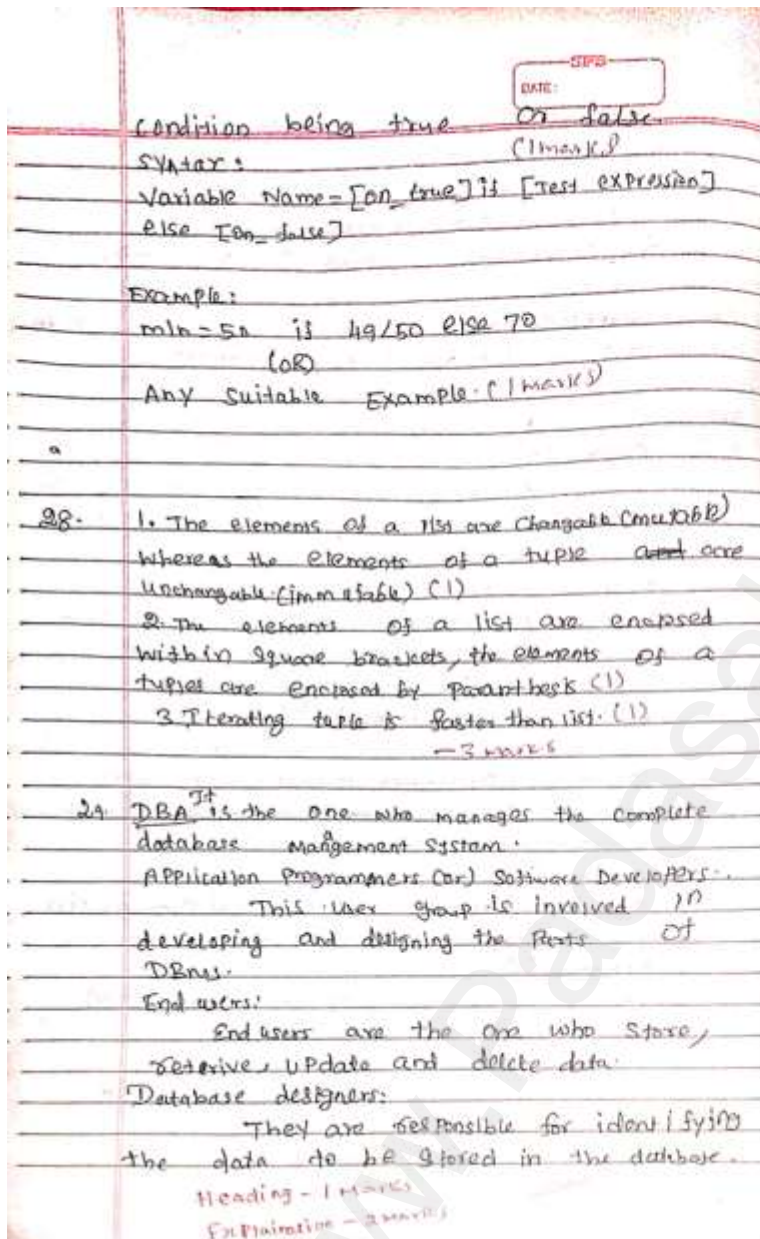 SPB
DATE:
condition being true or false.
(1 marks)
Syntax:
Variable Name = [on_true] if [Test expression]
else [on_false]
Example:
min = 50 if 49<50 else 70
(OR)
Any Suitable Example. (1 marks)
28. 1. The elements of a list are Changable (mutable)
whereas the elements of a tuple are
unchangable (immutable) (1)
2. The elements of a list are enclosed
within square brackets, the elements of a
tuples are enclosed by paranthesis (1)
3. Iterating tuple is faster than list. (1)
- 3 marks
29. DBA It is the one who manages the complete
database mangement system.
Application Programmers (or) Software Developers.
This user group is involved in
developing and designing the Parts of
DBMS.
End users:
End users are the one who store,
reterive, update and delete data.
Database designers:
They are responsible for identifying
the data to be stored in the database.
Heading - 1 Marks
Explaination - 2 marks
www.Padasa